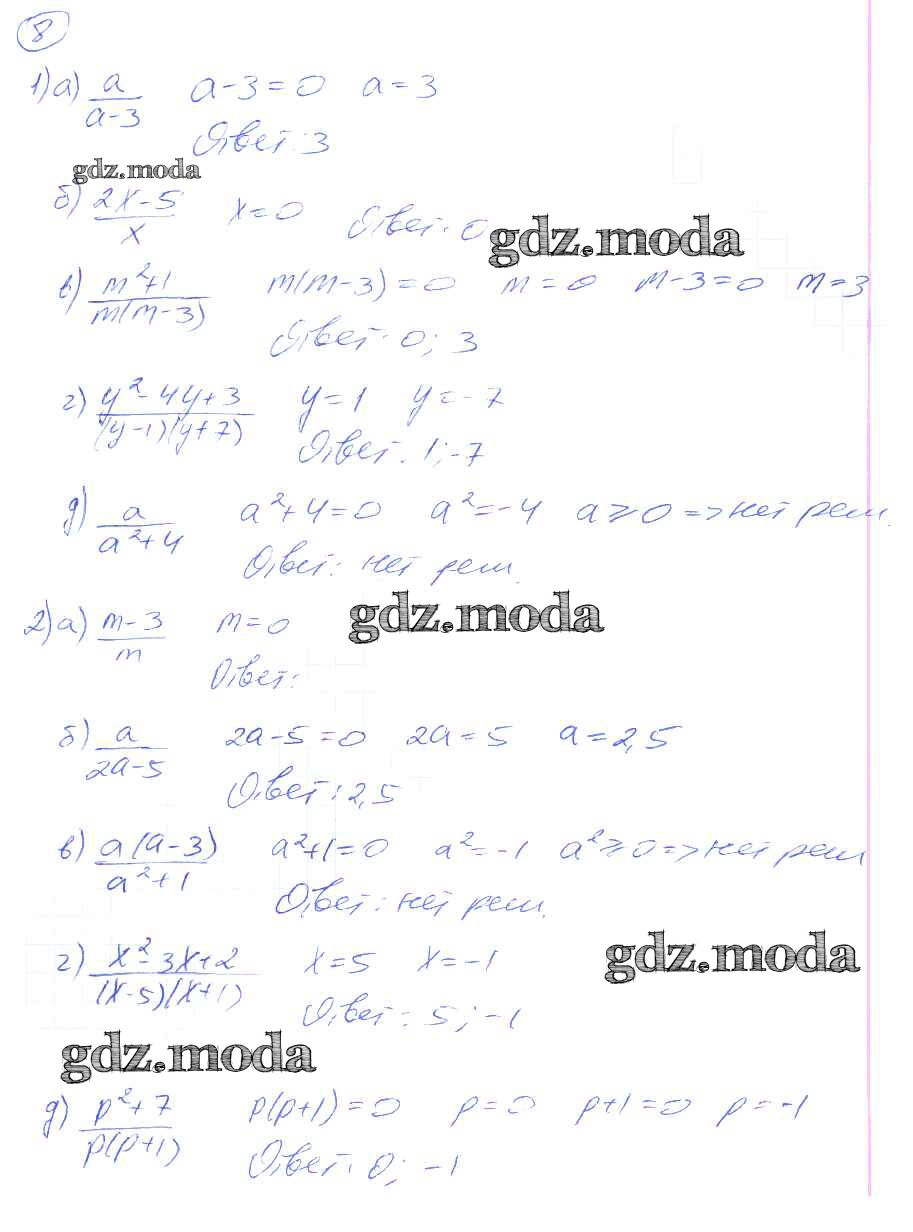 8
1) а) a/(a-3) a-3=0 a=3
Ответ: 3
gdz.moda
б) (2x-5)/x x=0 Ответ: 0
gdz.moda
в) (m²+1)/(m(m-3)) m(m-3)=0 m=0 m-3=0 m=3
Ответ: 0; 3
г) (y²-4y+3)/((y-1)(y+7)) y=1 y=-7
Ответ: 1; -7
д) a/(a²+4) a²+4=0 a²=-4 a≥0 => нет реш.
Ответ: нет реш.
gdz.moda
2) а) (m-3)/m m=0
Ответ:
б) a/(2a-5) 2a-5=0 2a=5 a=2,5
Ответ: 2,5
в) a(a-3)/(a²+1) a²+1=0 a²=-1 a²≥0 => нет реш
Ответ: нет реш.
gdz.moda
г) (x²-3x+2)/((x-5)(x+1)) x=5 x=-1
Ответ: 5; -1
gdz.moda
д) (p²+7)/(p(p+1)) p(p+1)=0 p=0 p+1=0 p=-1
Ответ: 0; -1